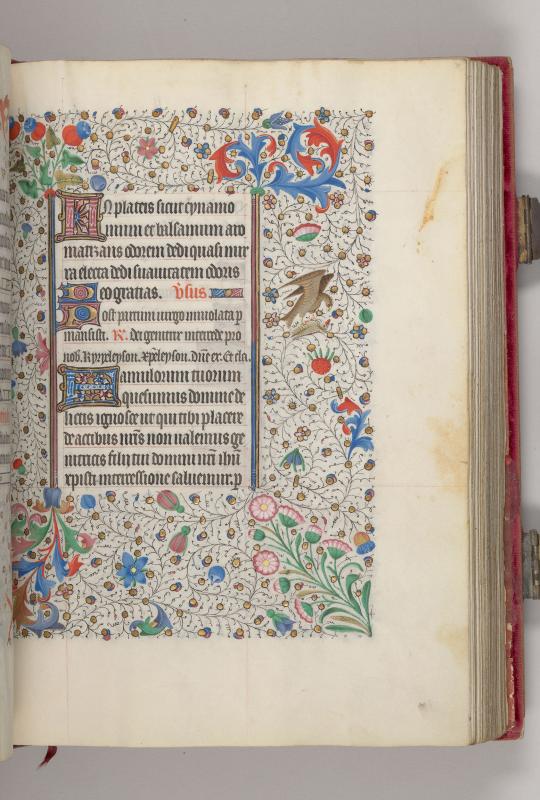 IN plateis sicut cynamo
mum et balsamum aro
matizans odorem dedi quasi mir
ra electa dedi suauitatem odoris
Deo gratias. v̄sus
Post partum uirgo inuiolata p̱
mansisti. R̷. dei genitrix intercede pro
nob. Kyryeleyson. Xp̄eleyson. dn̄e ex. Et cla.
Famulorum tuorum
quesumus domine de
lictis ignosce ut qui tibi placere
de actibus nr̄is non ualemus ge
nitricis filii tui domini nr̄i ih̄u
xpisti intercessione saluemur. p̱